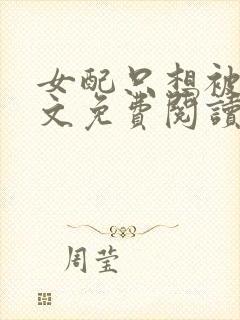 女配只想被
文免費閱讀
周莹